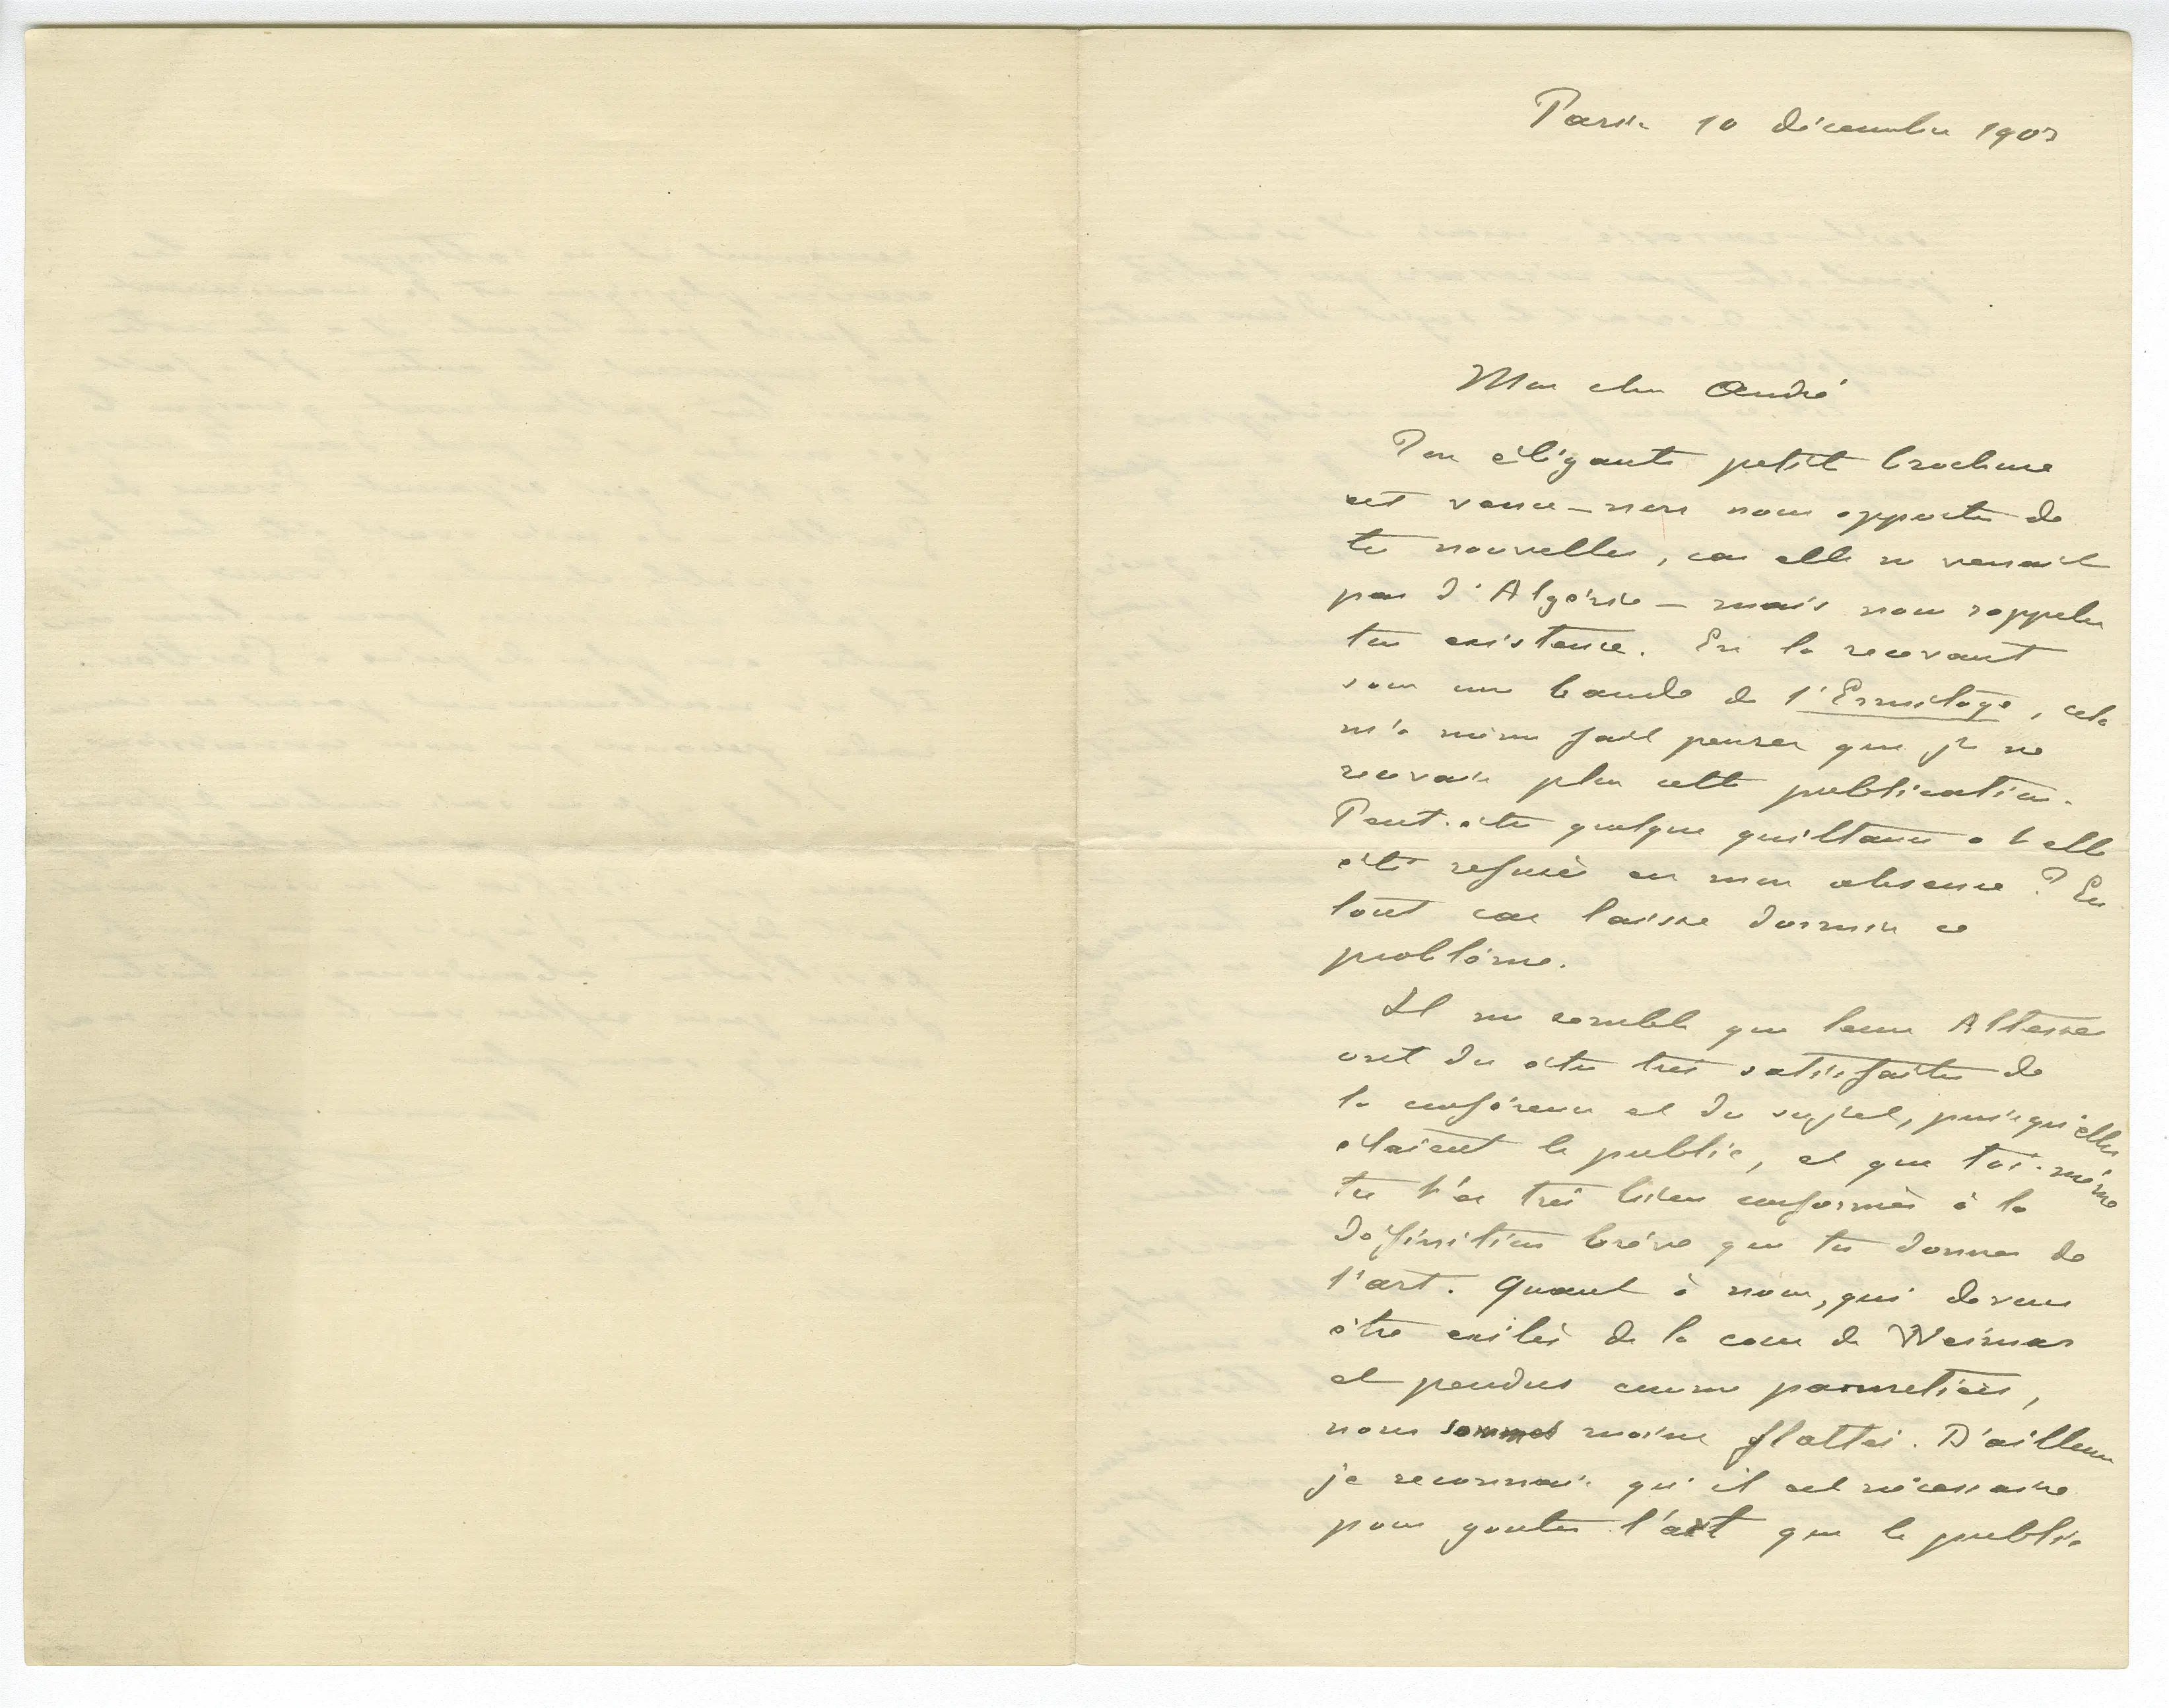 Paris 10 décembre 1903
Mon cher André
Ton élégante petite brochure
est venue – non nous apporter de
tes nouvelles, car elle ne venait
pas d'Algérie – mais nous rappeler
ton existence. En la recevant
sous une bande de l'Ermitage, cela
m'a même fait penser que je ne
recevais plus cette publication.
Peut-être quelque quittance a t elle
été refusée en mon absence ? En
tout cas laisse dormir ce
problème.
Il me semble que leurs Altesses
ont du être très satisfaites de
la conférence et du sujet, puisqu'elles
étaient le public, et que toi-même
tu t'es très bien conformé à la
définition brève que tu donnes de
l'art. Quant à nous, qui devons
être exilés de la cour de Weimar
et pendus comme
nous sommes moins flattés. D'ailleurs
je reconnais qu'il est nécessaire
pour gouter l'art que le public